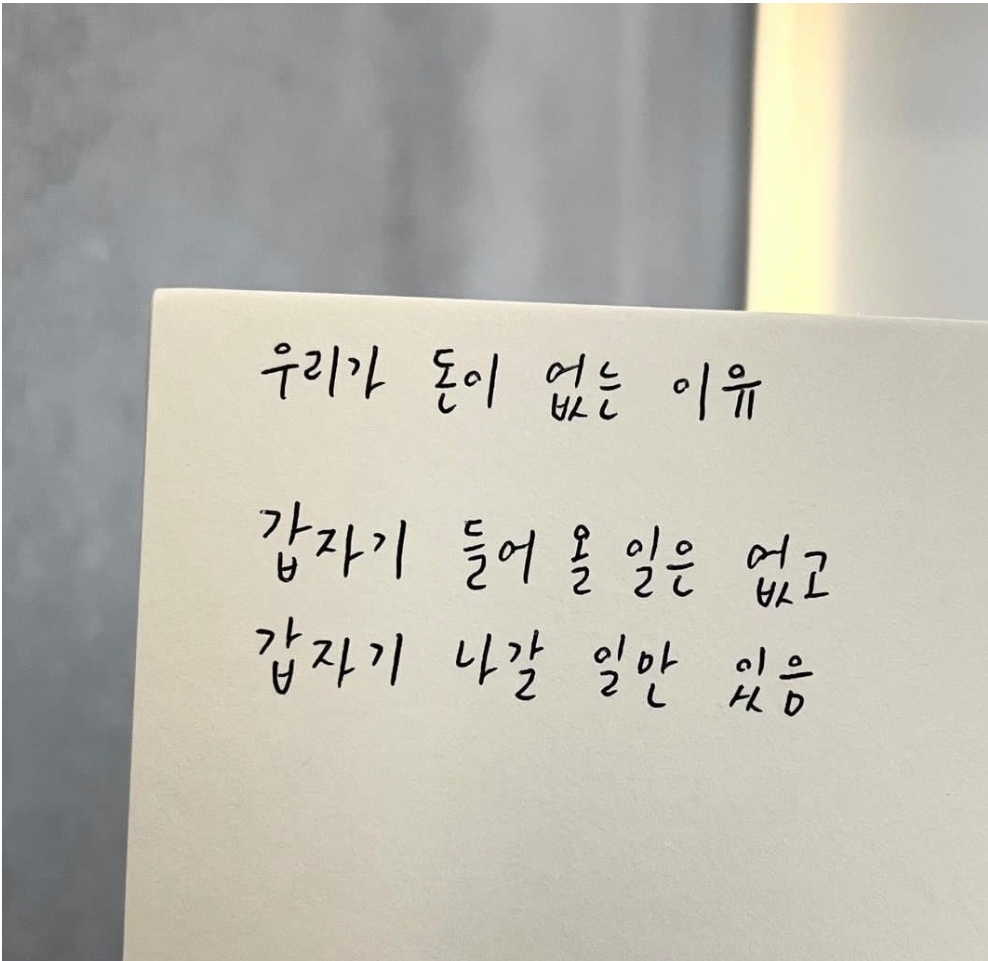 우리가 돈이 없는 이유
갑자기 들어 올 일은 없고
갑자기 나갈 일만 있음